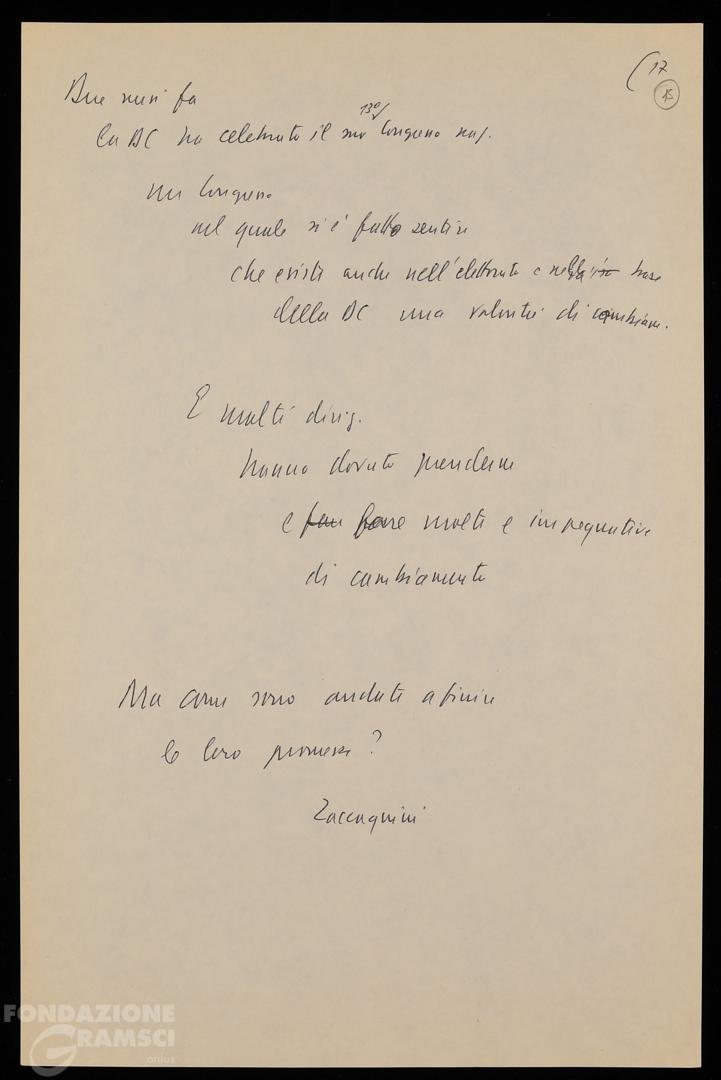 (17
15
Due mesi fa
13º/
la DC ha celebrato il suo Congresso naz.
un Congresso
nel quale si è fatto sentire
che esiste anche nell'elettorato e nella base
della DC una volontà di cambiare.
E molti dirig.
hanno dovuto prenderne
e fare molte e impegnative
di cambiamento
Ma come sono andate a finire
le loro promesse?
Zaccagnini
FONDAZIONE
GRAMSCI
onlus